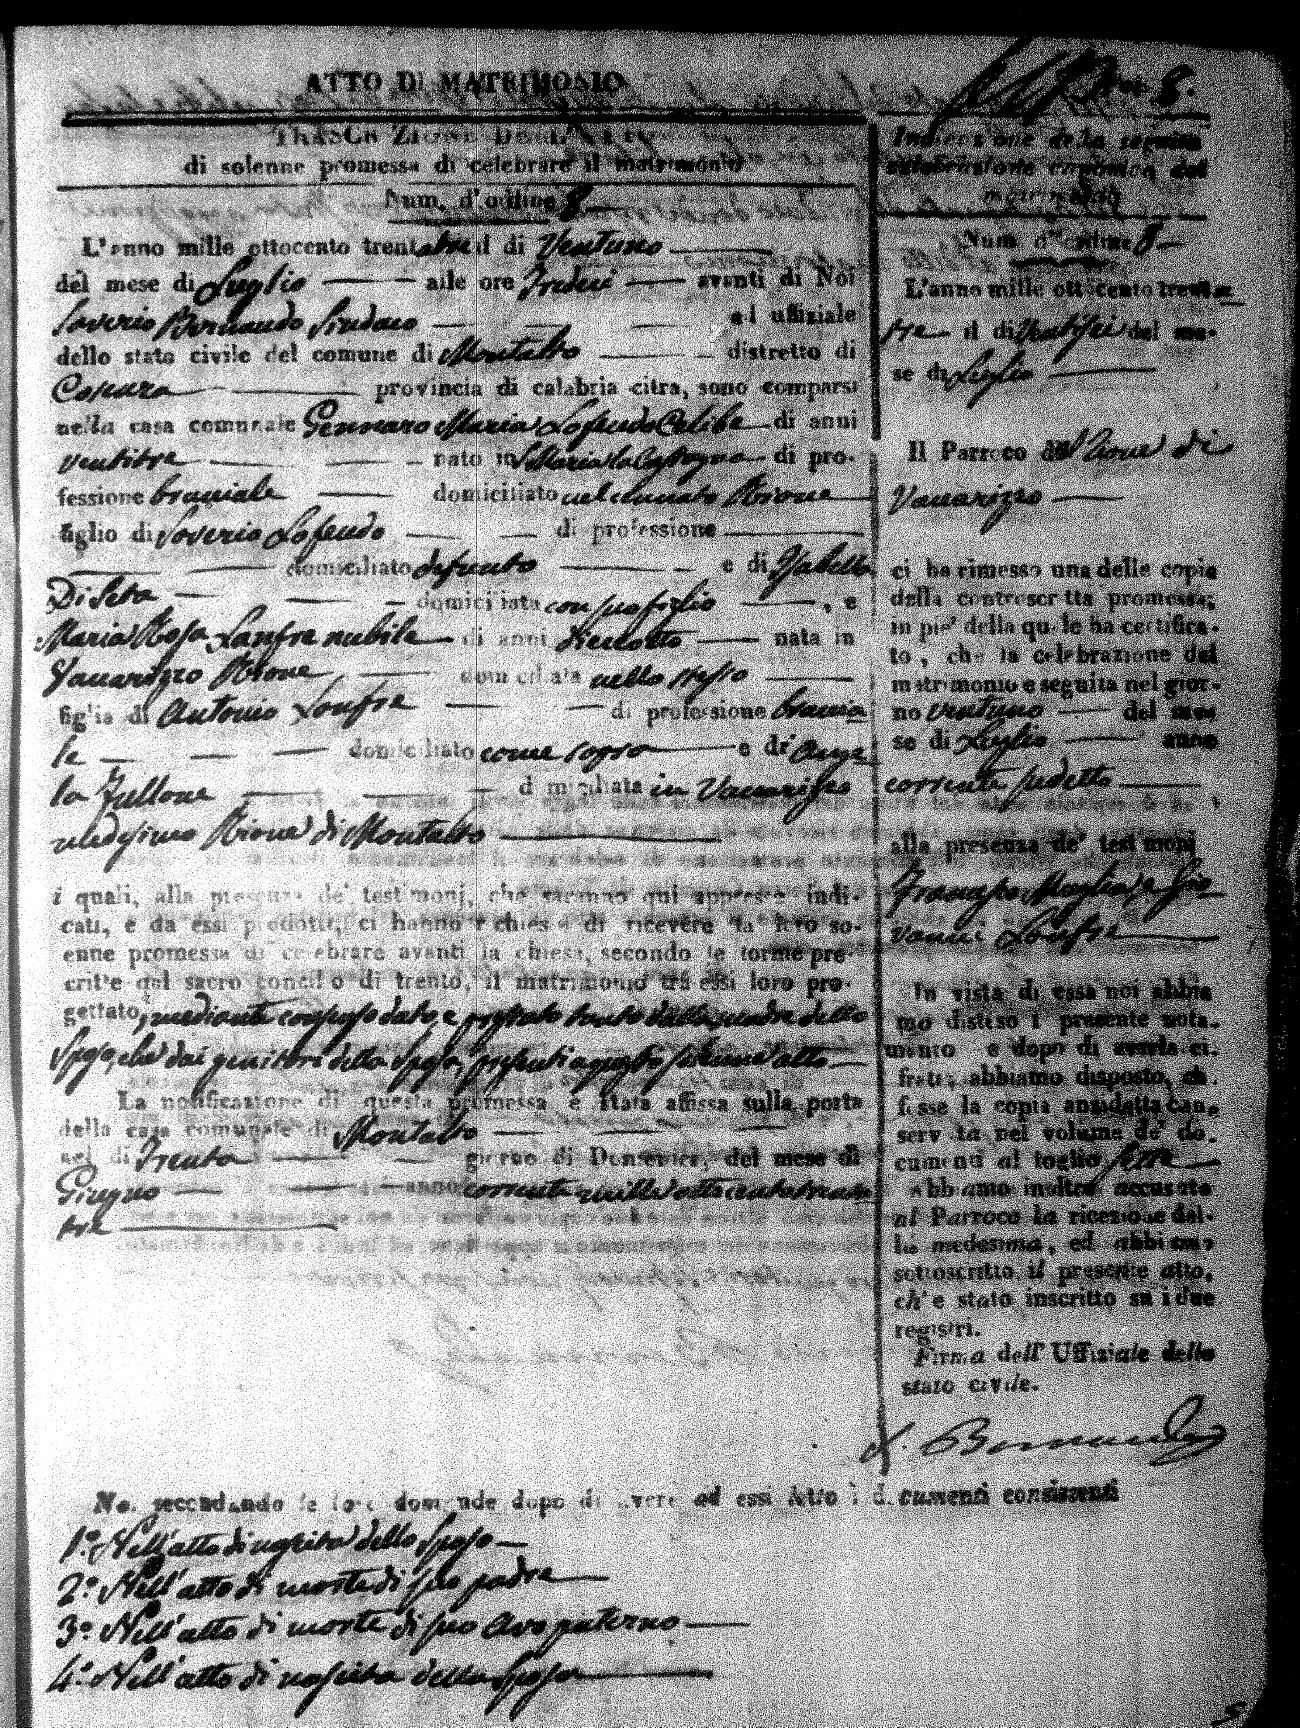 ATTO DI MATRIMONIO
di solenne promessa di celebrare il matrimonio
Num. d'ordine 8
L'anno mille ottocento trentatre il di Ventuno
del mese di Luglio alle ore Tredeci avanti di Noi
Saverio Bernaudo Sindaco ed uffiziale
dello stato civile del comune di Montalto distretto di
Cosenza provincia di calabria citra, sono comparsi
nella casa comunale Gennaro Maria Lofeudo Celibe di anni
ventitre nato in di pro-
fessione bracciale domiciliato nel Rione
figlio di Saverio Lofeudo di professione
domiciliato defunto e di Isabella
Di Seta domiciliata con suo figlio , e
Maria Rosa Lanfre nubile di anni dieciotto nata in
Vaccarizzo Rione domiciliata nello stesso
figlia di Antonio di professione braccia
le domiciliato come sopra e di Ange
la Fullone domiciliata in Vaccarizzo
medesimo Rione di Montalto
i quali, alla presenza de' testimonj, che saranno qui appresso indi-
cati, e da essi prodotti, ci hanno richiesto di ricevere la loro so-
enne promessa di celebrare avanti la chiesa, secondo le forme pre-
critte dal sacro concilio di trento, il matrimonio tra essi loro pro-
gettato, mediante consenso dato e prestato tanto dalla madre dello
Sposo, che dai genitori della Sposa, presenti a questo solenne atto
La notificazione di questa promessa è stata affissa sulla porta
della casa comunale di Montalto
nel di Trenta giorno di Domenica, del mese di
Giugno anno corrente mille ottocentotrenta
tre
No. seccndando le loro domande dopo di avere ad essi letto i documenti consistenti
1.° Nell'atto di nascita dello Sposo
2.° Nell'atto di morte di suo padre
3.° Nell'atto di morte di suo Avo paterno
4.° Nell'atto di nascita della Sposa
8.
Indicazione della seguita
celebrazione canonica del
matrimonio
Num. d'ordine 8
L'anno mille ottocento trenta
tre il di Ventisei del me-
se di Luglio
Il Parroco di
Vaccarizzo
ci ha rimesso una delle copie
della controscritta promessa;
in pie' della quale ha certifica-
to, che la celebrazione del
matrimonio e seguita nel gior-
no ventuno del me-
se di Luglio anno
corrente sudetto
alla presenza de' testimonj
Francesco Maglia, e Gio
vanni
In vista di essa noi abbia
mo disteso il presente nota-
mento e dopo di averla ci-
frata, abbiamo disposto, ch.
fosse la copia anzidetta con-
servata nel volume de' do-
cumenti al foglio sette
Abbiamo inoltre accusato
al Parroco la ricezione del-
la medesima, ed abbiamo
sottoscritto il presente atto,
ch'e stato inscritto su i due
registri.
Firma dell' Uffiziale dello
stato civile.
S. Bernaudo